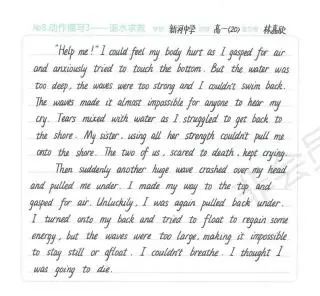 No8.动作描写3——溺水求救 新河中学 高一(20)
"Help me!" I could feel my body hurt as I gasped for air
and anxiously tried to touch the bottom. But the water was
too deep, the waves were too strong and I couldn't swim back.
The waves made it almost impossible for anyone to hear my
cry. Tears mixed with water as I struggled to get back to
the shore. My sister, using all her strength couldn't pull me
onto the shore. The two of us, scared to death, kept crying.
Then suddenly another huge wave crashed over my head
and pulled me under. I made my way to the top and
gasped for air. Unluckily, I was again pulled back under.
I turned onto my back and tried to float to regain some
energy, but the waves were too large, making it impossible
to stay still or afloat. I couldn't breathe. I thought I
was going to die.